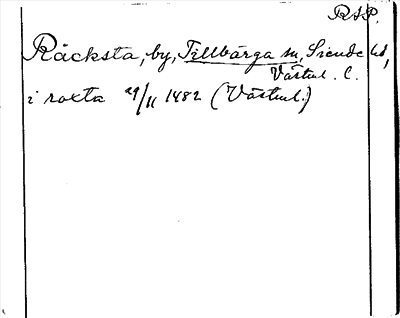 RSP.
Räcksta, by, Tillbärga sn, Siende hd,
Västml. C.
i roxta 29/11 1482 (Västml.)